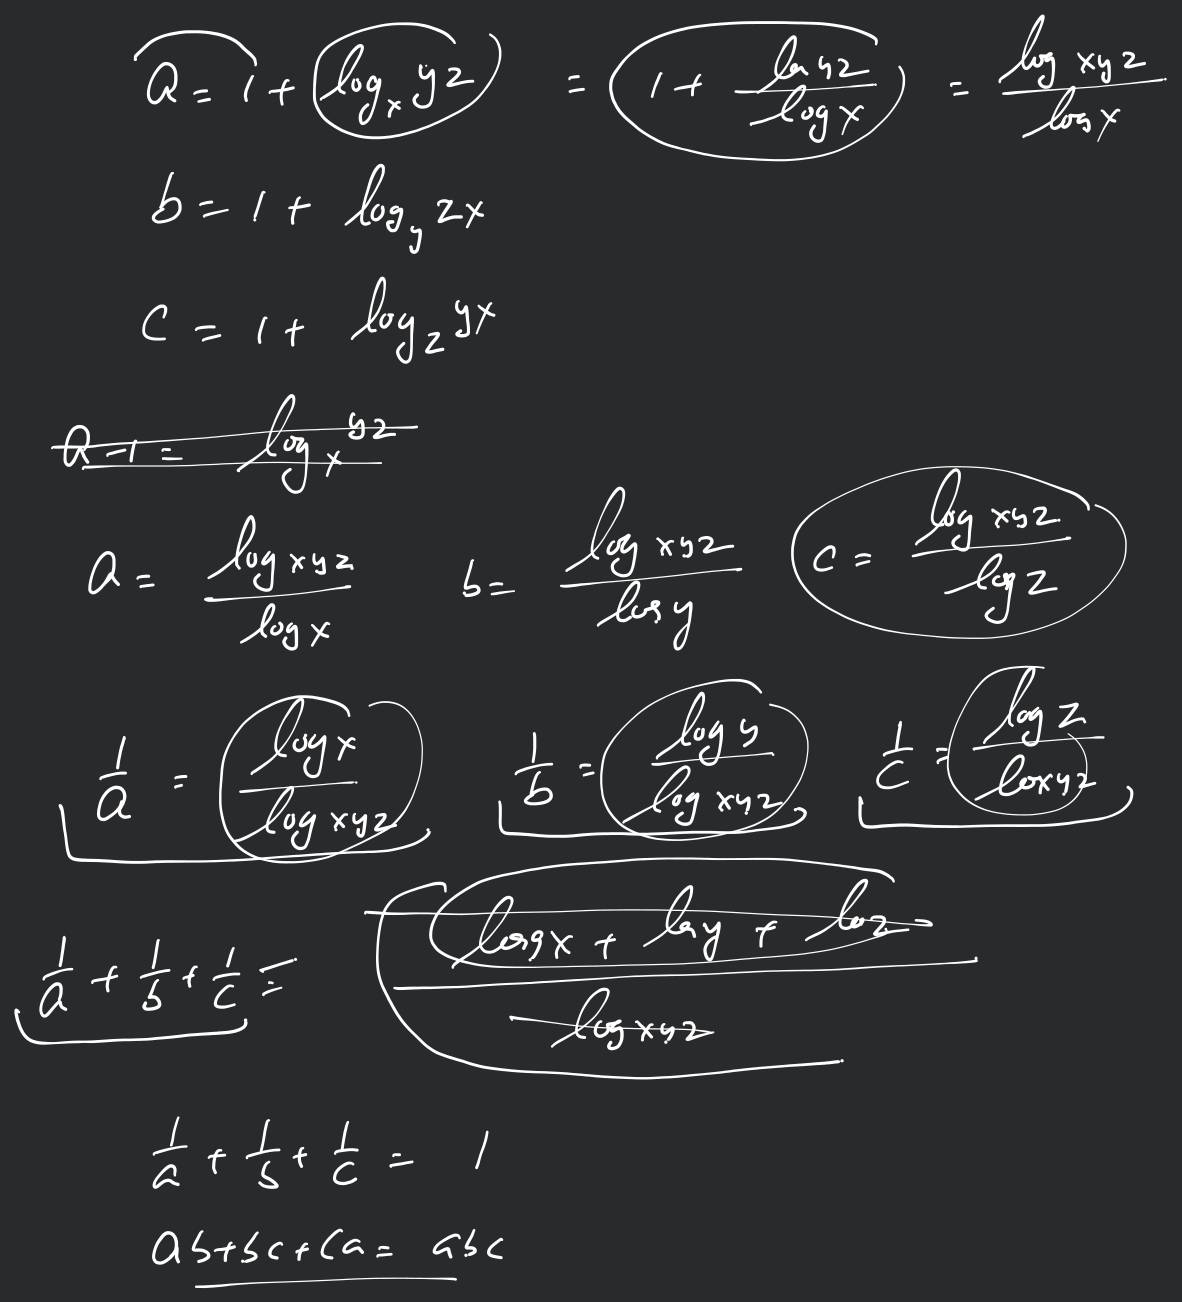 a = 1 + log_x yz = 1 + log yz / log x = log xyz / log x
b = 1 + log_y zx
c = 1 + log_z yx
a - 1 = log_x yz
a = log xyz / log x b = log xyz / log y c = log xyz / log z
1/a = log x / log xyz 1/b = log y / log xyz 1/c = log z / loxyz
1/a + 1/b + 1/c = log x + log y + log z / log xyz
1/a + 1/b + 1/c = 1
ab+bc+ca = abc